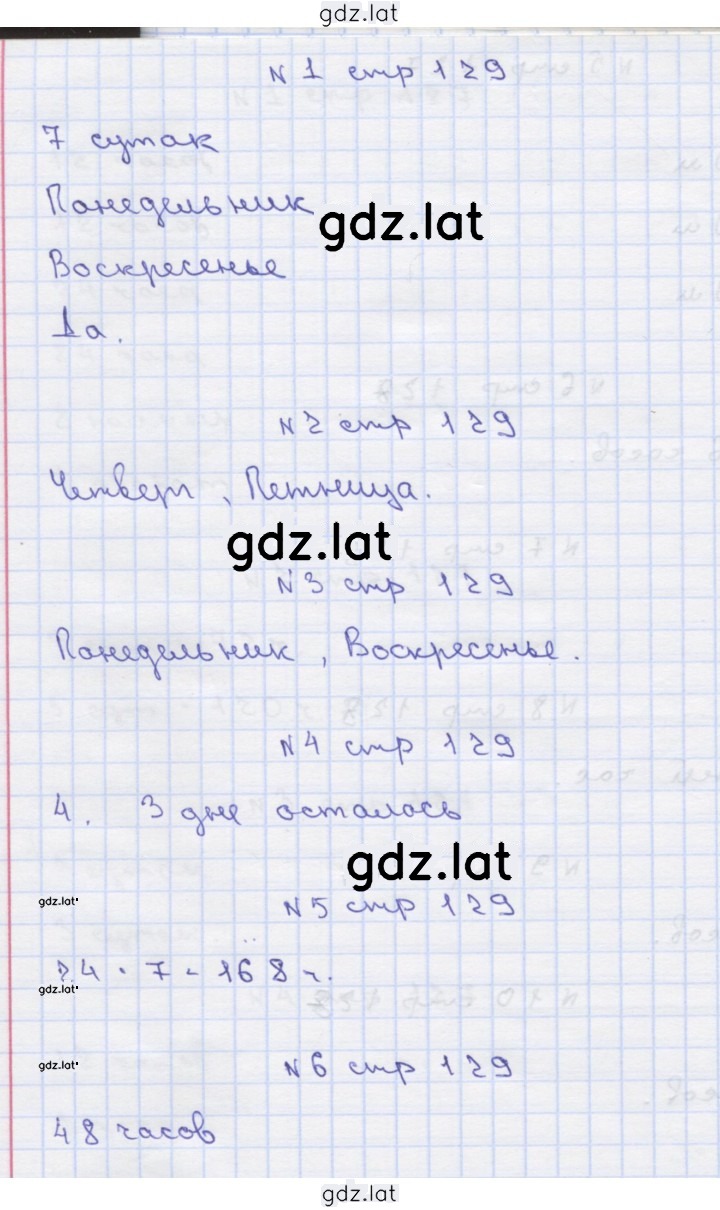 gdz.lat
N 1 стр 129
7 суток
Понедельник
gdz.lat
Воскресенье
Да.
N 2 стр 129
Четверг, Пятница.
gdz.lat
N 3 стр 129
Понедельник, Воскресенье.
N 4 стр 129
4. 3 дне осталось
gdz.lat
gdz.lat
N 5 стр 129
24 · 7 = 168 ч.
gdz.lat
gdz.lat
N 6 стр 129
48 часов
gdz.lat